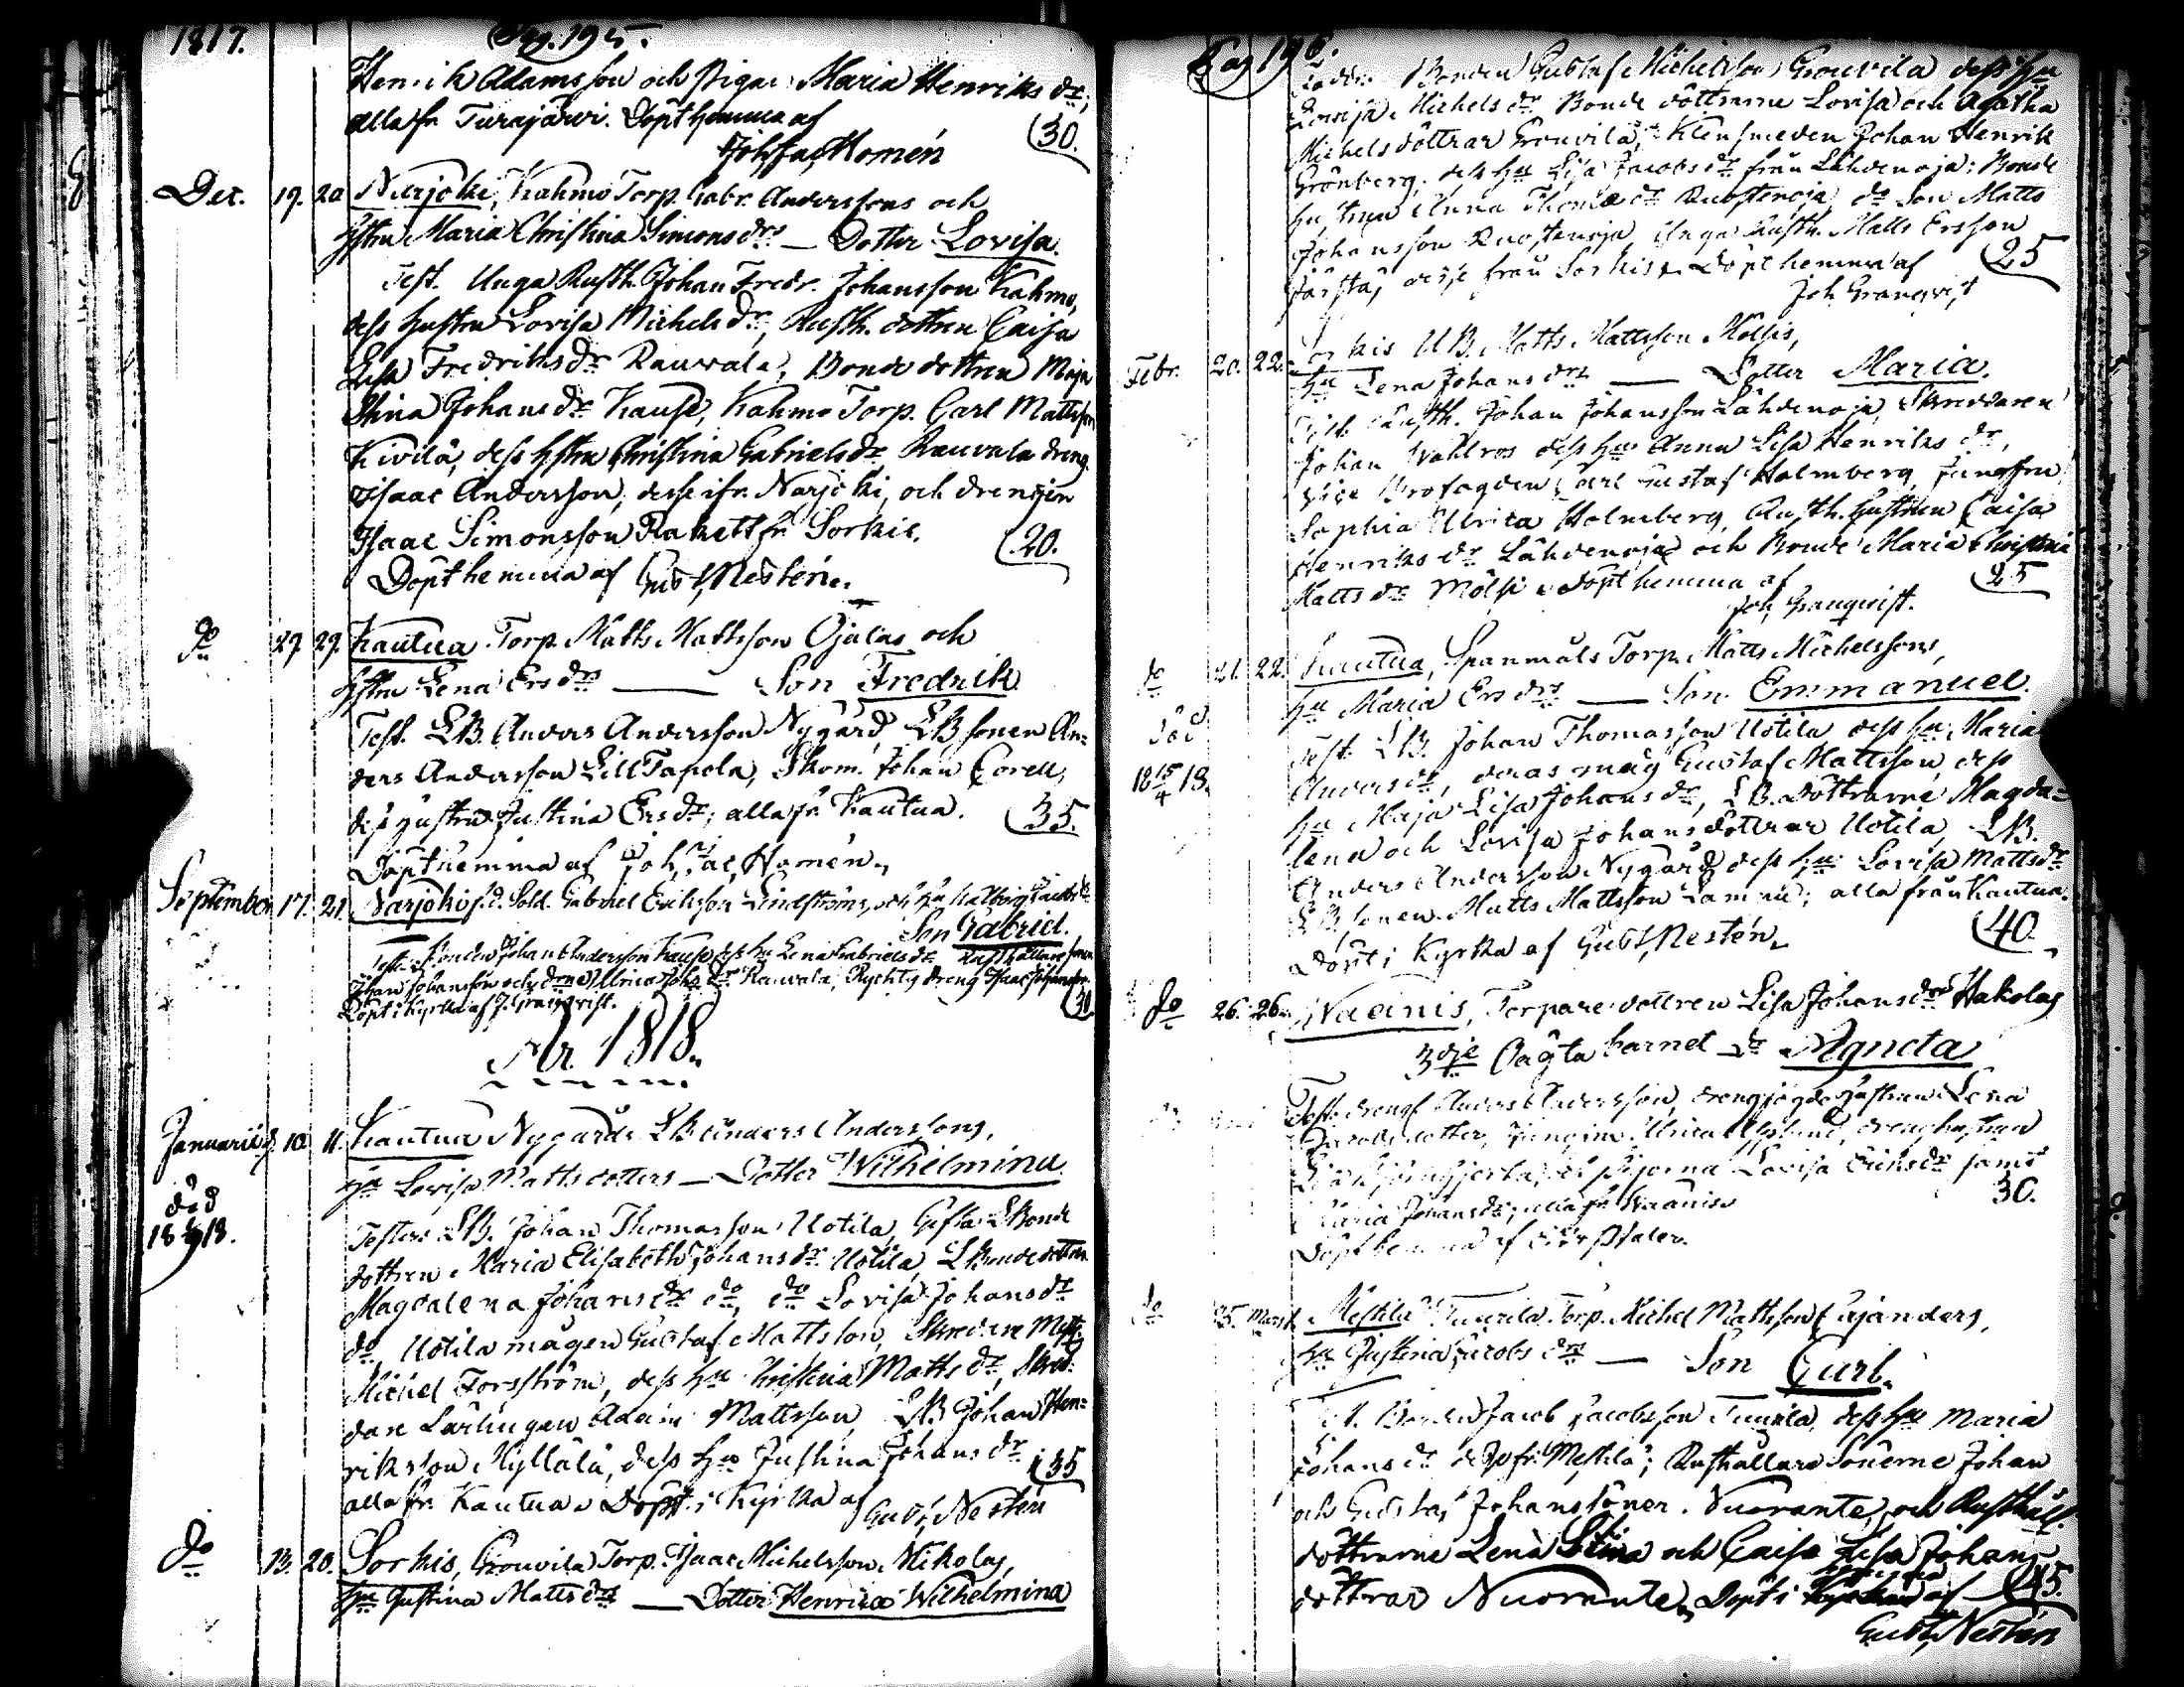 1817.
Pag. 195.
Henrik Adamsson och Pigan Maria Henriks dr,
alla fr. Turajärwi. Döpt hemma af
Joh. Jac. Homén (30.
Dec. 19. 20. Nurjoki, Kahmo Torp. Gabr. Anderssons och
hstru Maria Christina Simonsdrs — Dotter Lovisa.
Test. Unga Rusth. Johan Fredr. Johansson Kahmo,
dess hustru Lovisa Michels dr, Rusth. dottren Caisa
Lisa Fredriks dr Rauvala, Bonde dottren Maja
Stina Johans dr Kause, Kahmo Torp. Carl Mattsson
Kivilä, dess hstru Christina Gabriels dr Rauvala dreng.
Isaac Andersson, desse ifr. Narjoki, och drengen
Isaac Simonsson Rakett fr. Sorkis. (20.
Döpt hemma af Gust. Nestén.
do 27. 29. Kautua Torp. Matts Mattsson Ojalas och
hstru Lena Ers drs — Son Fredrik
Test. LB. Anders Andersson Nygård, LB sonen An=
ders Andersson LillTapola, Skom. Johan Corell,
dess hustru Justina Ers dr; alla fr. Kautua. (35.
Döpt hemma af Joh. Jac. Homén.
September 17. 21. Narjoki f.d. Sold. Gabriel Ericksson Lindströms, och hu Walborg
Son Gabriel.
Test. Bonden Johan Andersson Kause dess hu Lena Gabriels dr
Johan Johansson och Ulrica Johs dr Rauvala, Dreng Isaac
Döpt i Kyrka af J. Granqvist. (30.
År 1818.
Januarii 10. 11. Kautua Nygårds LB Anders Anderssons,
hu Lovisa Matts dotters — Dotter Wilhelmina
död
18 18.
Testes. LB. Johan Thomasson Uotila, Gifta LBonde
dottren Maria Elisabeth Johans dr Uotila, LBonde dottren
Magdalena Johans dr do, do Lovisa Johans dr
do Uotila mågen Gustaf Mattsson, Skreddare Mest.
Michel Forsström, dess hu Christina Matts dr, Skred=
dare Lärlingen Adam Mattsson, LB Johan Hen=
riksson Kyllälä, dess hu Justina Johans dr (35
alla fr. Kautua. Döpt i Kyrka af Gust. Nestén
do 13. 20. Sorkis, Grouvila Torp. Isaac Michelsson Nikolas,
hu Justina Matts drs — Dotter Henrica Wilhelmina
Pag 196.
Bonden Gustaf Michelsson Grouvila dess hu
Lovisa Michels dr Bonde döttrarne Lovisa och Agatha
Michels döttrar Grouvila, Klensmeden Johan Henrik
Grönberg, dess hu Lisa Jacobs dr från Lähdenoja; Bonde
hustrun Anna Thomae dr Ruostenoja, do Son Matts
Johansson Ruostenoja, Unga Rusth. Matts Ersson
desse från Sorkis. Döpt hemma af (25
Joh. Granqvist
Febr. 20. 22. Sorkis UB. Matts Mattsson Mölsis,
hu Lena Johans drs — Dotter Maria.
Test. Rusth. Johan Johansson Lähdenoja, Skreddaren
Johan Wahlros dess hu Anna Lisa Henriks dr,
vice Brofogden Carl Gustaf Holmberg, Jungfru
Sophia Ulrica Holmberg, Rusth. hustrun Caisa
Henriks dr Lähdenoja och Bonde Maria Christina
Matts dr Mölsi. Döpt hemma af (25
Joh. Granqvist.
do 21. 22. Kautua, Spanmåls Torp. Matts Michelssons,
hu Maria Ers drs — Son Emmanuel.
död
18 15/4 18.
Test. LB. Johan Thomasson Uotila dess hu Maria
Anders dr, deras måg Gustaf Mattsson, dess
hu Maja Lisa Johans dr, LB. döttrarne Magda=
lena och Lovisa Johans döttrar Uotila, LB.
Anders Andersson Nygård dess hu Lovisa Matts dr
LB sonen Matts Mattsson; alla från Kautua.
Döpt i Kyrka af Gust. Nestén. (40.
do 26. 26. Naanis, Torpare dottren Lisa Johans drs Hakolas
3dje Oägta barnet dr Agneta
Test. dreng Anders Andersson, hustrun Lena
Jacobs dotter, Ulrica, drenghustrun
Pigorna Lovisa Eriks dr samt
Maria Johans dr; alla fr. Naanis. 30.
Döpt hemma af
do 25. Mars 1. Meskilä Tuurila Torp. Michel Mattsson Cajanders,
hu Justina Jacobs drs — Son Carl.
Test. Bonden Jacob Jacobsson Tuurila, dess hu Maria
Johans dr desse fr. Meskilä; Rusthållare Sönerne Johan
och Gustaf Johanssöner Nuoranta, och Rusthåll.
döttrarne Lena Stina och Caisa Lisa Johans
döttrar Nuoranta. Döpt i af (45.
Gust. Nestén